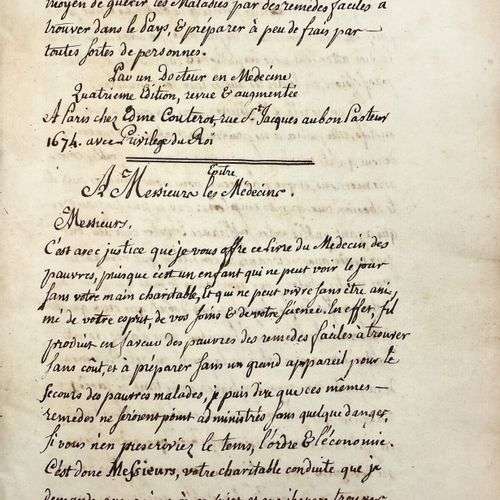 moyen de guérir les Maladies par des remedes faciles à
trouver dans le Pays, & préparer à peu de frais par
toutes sortes de personnes.
Par un Docteur en Medecine
Quatrieme Edition, revue & augmentée
A Paris chez Edme Couterot, rue St Jacques au bon Pasteur
1674. avec Privilege du Roi
Epitre
A Messieurs les Médecins.
Messieurs.
C'est avec justice que je vous offre ce Livre du Medecin des
pauvres, puisque c'est un enfant qui ne peut voir le jour
sans votre main charitable, Et qui ne peut vivre sans être ani,
mé de votre esprit, de vos soins & de votre science. En effet, s'il
produit en faveur des pauvres des remedes faciles à trouver
sans coût et à préparer sans un grand appareil pour le
secours des pauvres malades, je puis dire que ces mêmes
remedes ne seroient point administrés sans quelque danger,
si vous n'en prescriviez le tems, l'ordre & l'économie.
C'est donc Messieurs, votre charitable conduite que je
demande